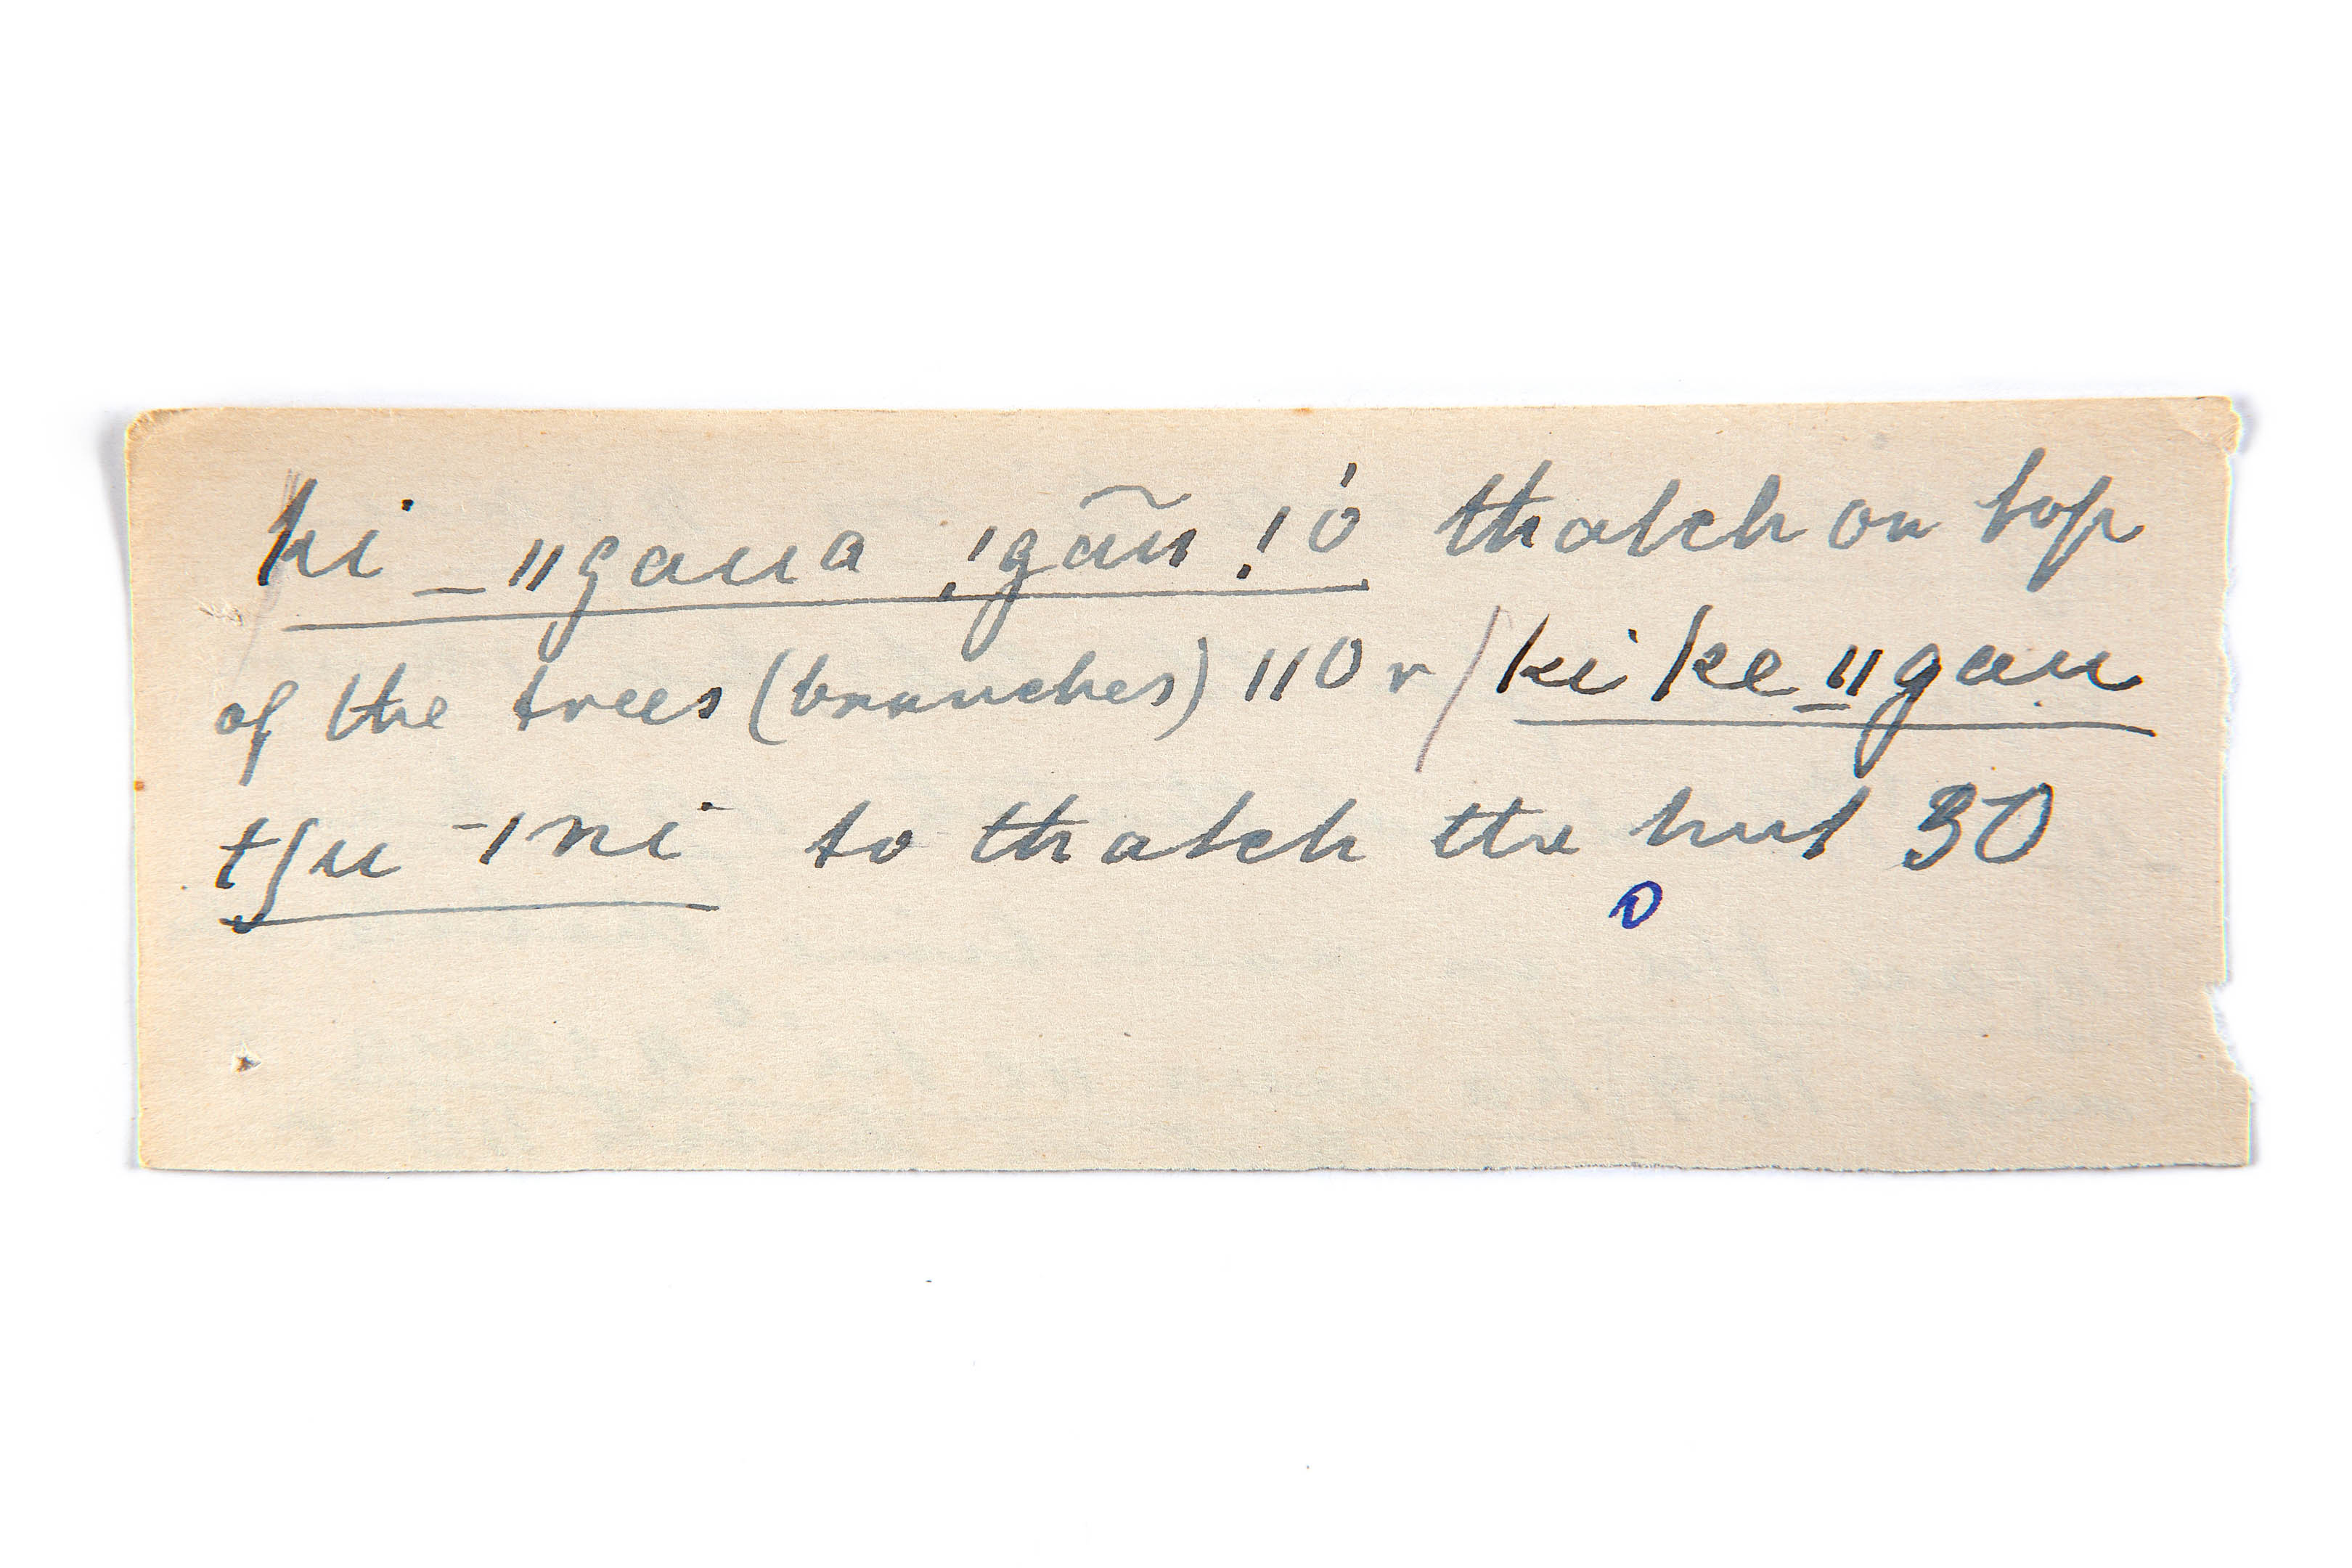 ki _ ǁgaua ǃgãũ ǃó thatch on top
of the trees (branches) 110 r / ki ke _ ǁgau
tʃu ¯ǀni to thatch the hut 30
0